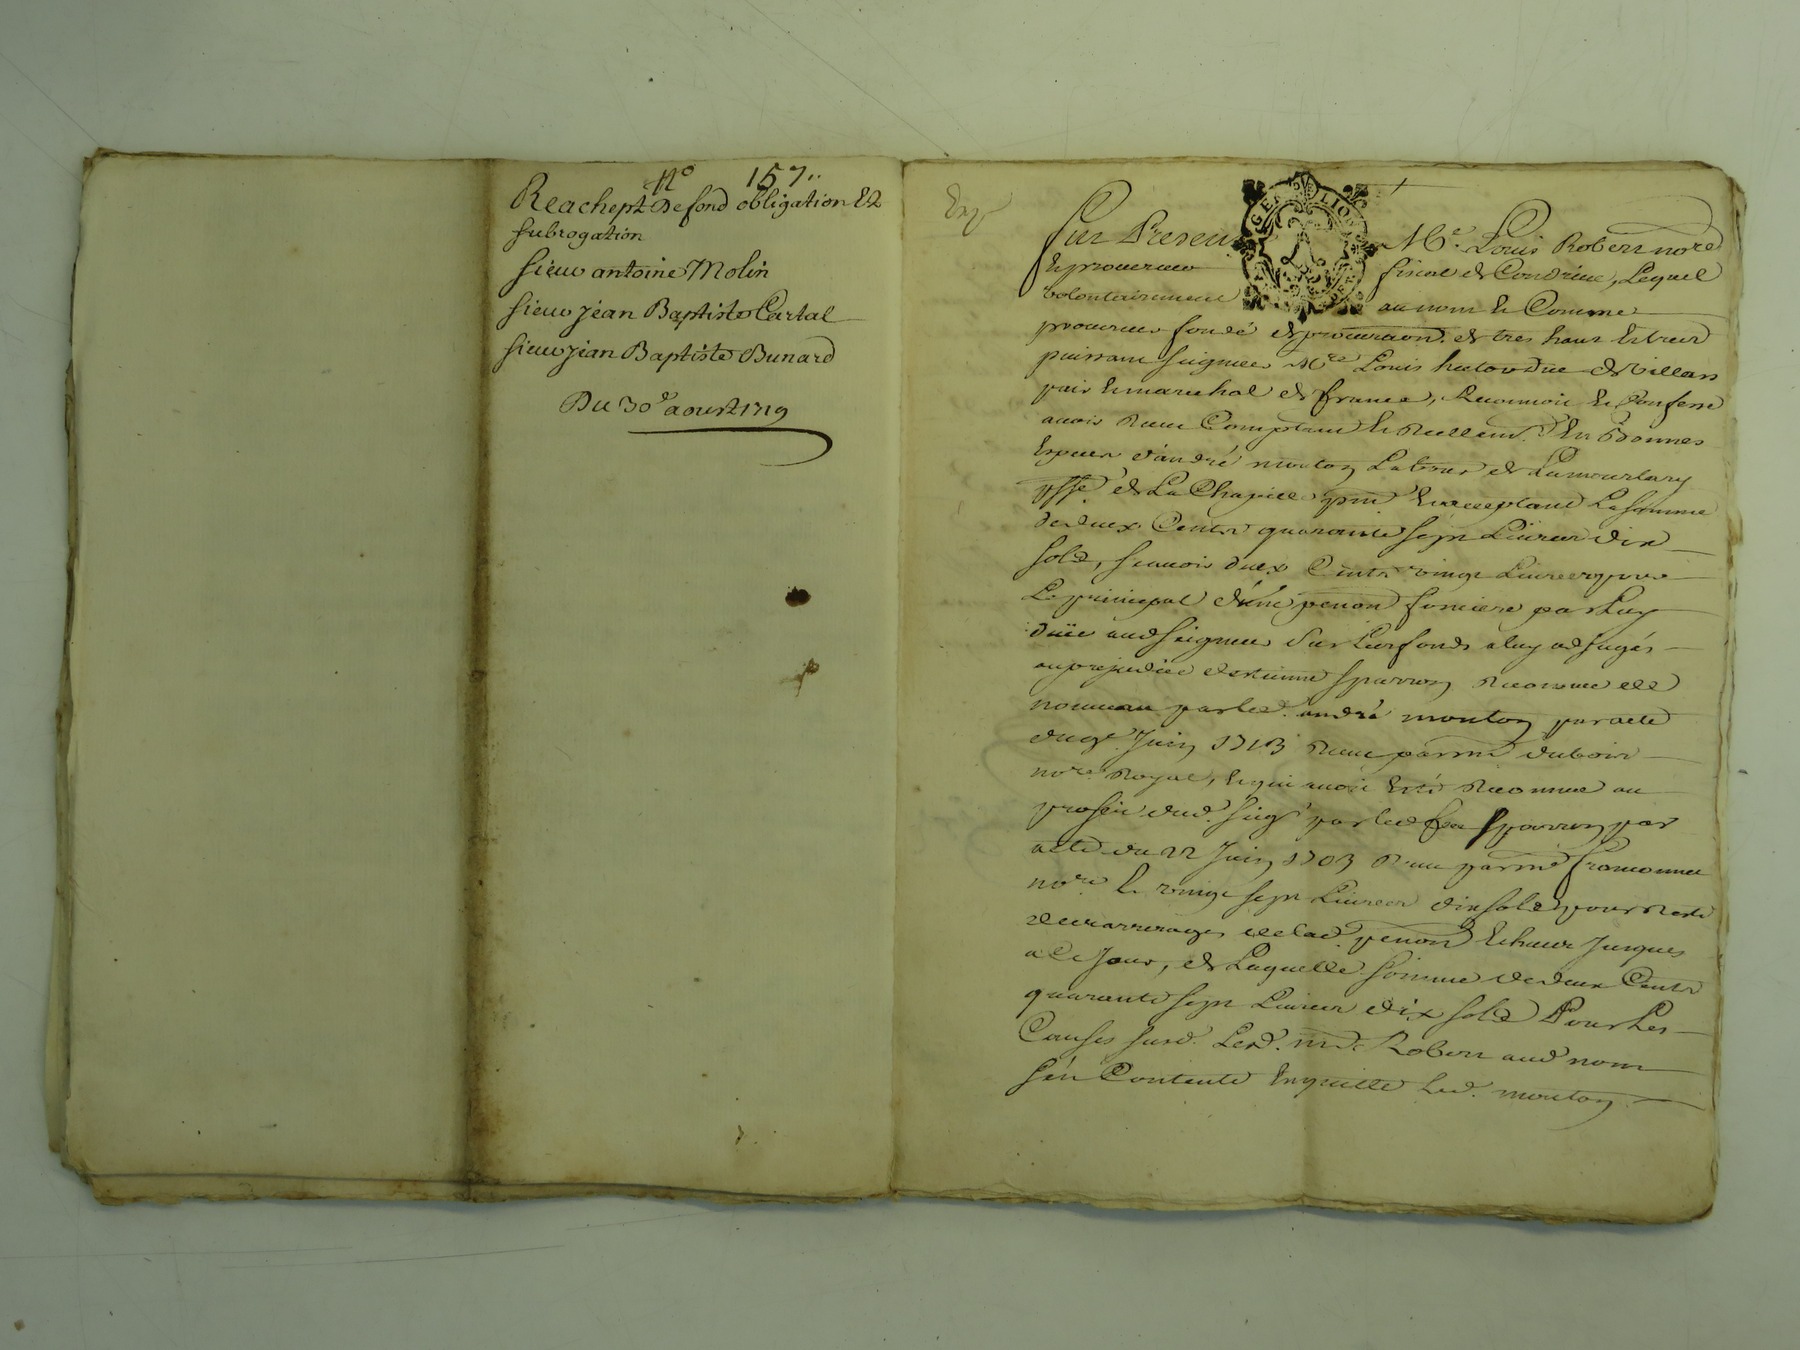 N° 157..
Reachept De fond obligation Et
subrogation
sieur antoine Molin
sieur jean Baptiste Cartal
sieur jean Baptiste Bunard
Du 30e aoust 1719
Exp
Fut Present Me. Louis Robert nore
et procureur fiscal de Condrieu, Lequel
volontairement au nom et Comme
procureur fondé de procuraon. de tres haut et tres
puissant seigneur Mre Louis hector duc de Villars
pair et marechal de france, Reconnoit et Confesse
avoir Receu Comptant et Reellemt. En Bonnes
Especes d'andré mouton Laboureur de
psse. de La Chapelle pnt Et acceptant La somme
de deux Cents quarante sept Livres dix
sols, scavoir deux Cents vingt Livres pour
Le principal d'une penon fonciere par Luy
düe aud seigneur sur Les fonds a luy adjugés
au prejudice d'estienne sparron Reconnue de
nouveau par led. andré mouton par acte
du 9e Juin 1713 Receu par me dubois
nore Royal, et qui avoit Esté Reconnue au
proffit dud. seigr par led feu sparron par
acte du 22 Juin 1703 Receu par me
nore. Et vingt sept Livres dix sols pour Reste
des arrerages de lad. penon Echeus Jusques
a Ce Jour, de Laquelle somme de deux Cents
quarante sept Livres dix sols Pour Les
Causes susd. Led. me Robert aud nom
s'en Contente En quitte Led. mouton